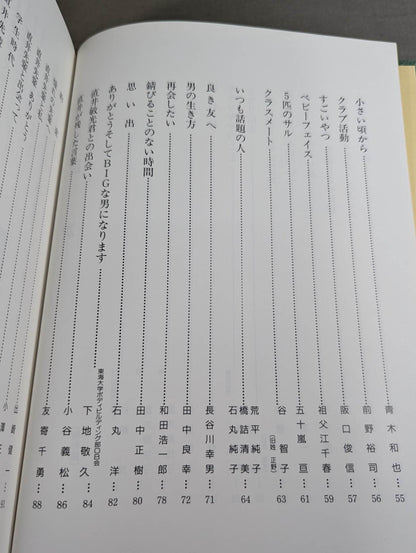 小さい頃から 青木和也 55
クラブ活動 前野裕司 56
すごいやつ 阪口俊信 57
ベビーフェイス 祖父江千春 59
5匹のサル 五十嵐亘 61
クラスメート 谷智子（旧姓 正野） 63
いつも話題の人 荒平純子
橋詰清美 64
石丸純子
良き友へ 長谷川幸男 71
男の生き方 田中良幸 72
再会したい 和田浩一郎 78
錆びることのない時間 田中正樹 80
思い出 石丸洋 82
ありがとうそしてBIGな男になります 東海大学ボディビルディング部OB会 下地敬久 84
直井敏光君との出会い 小谷義松 86
直井が残した言葉 友寄千勇 88